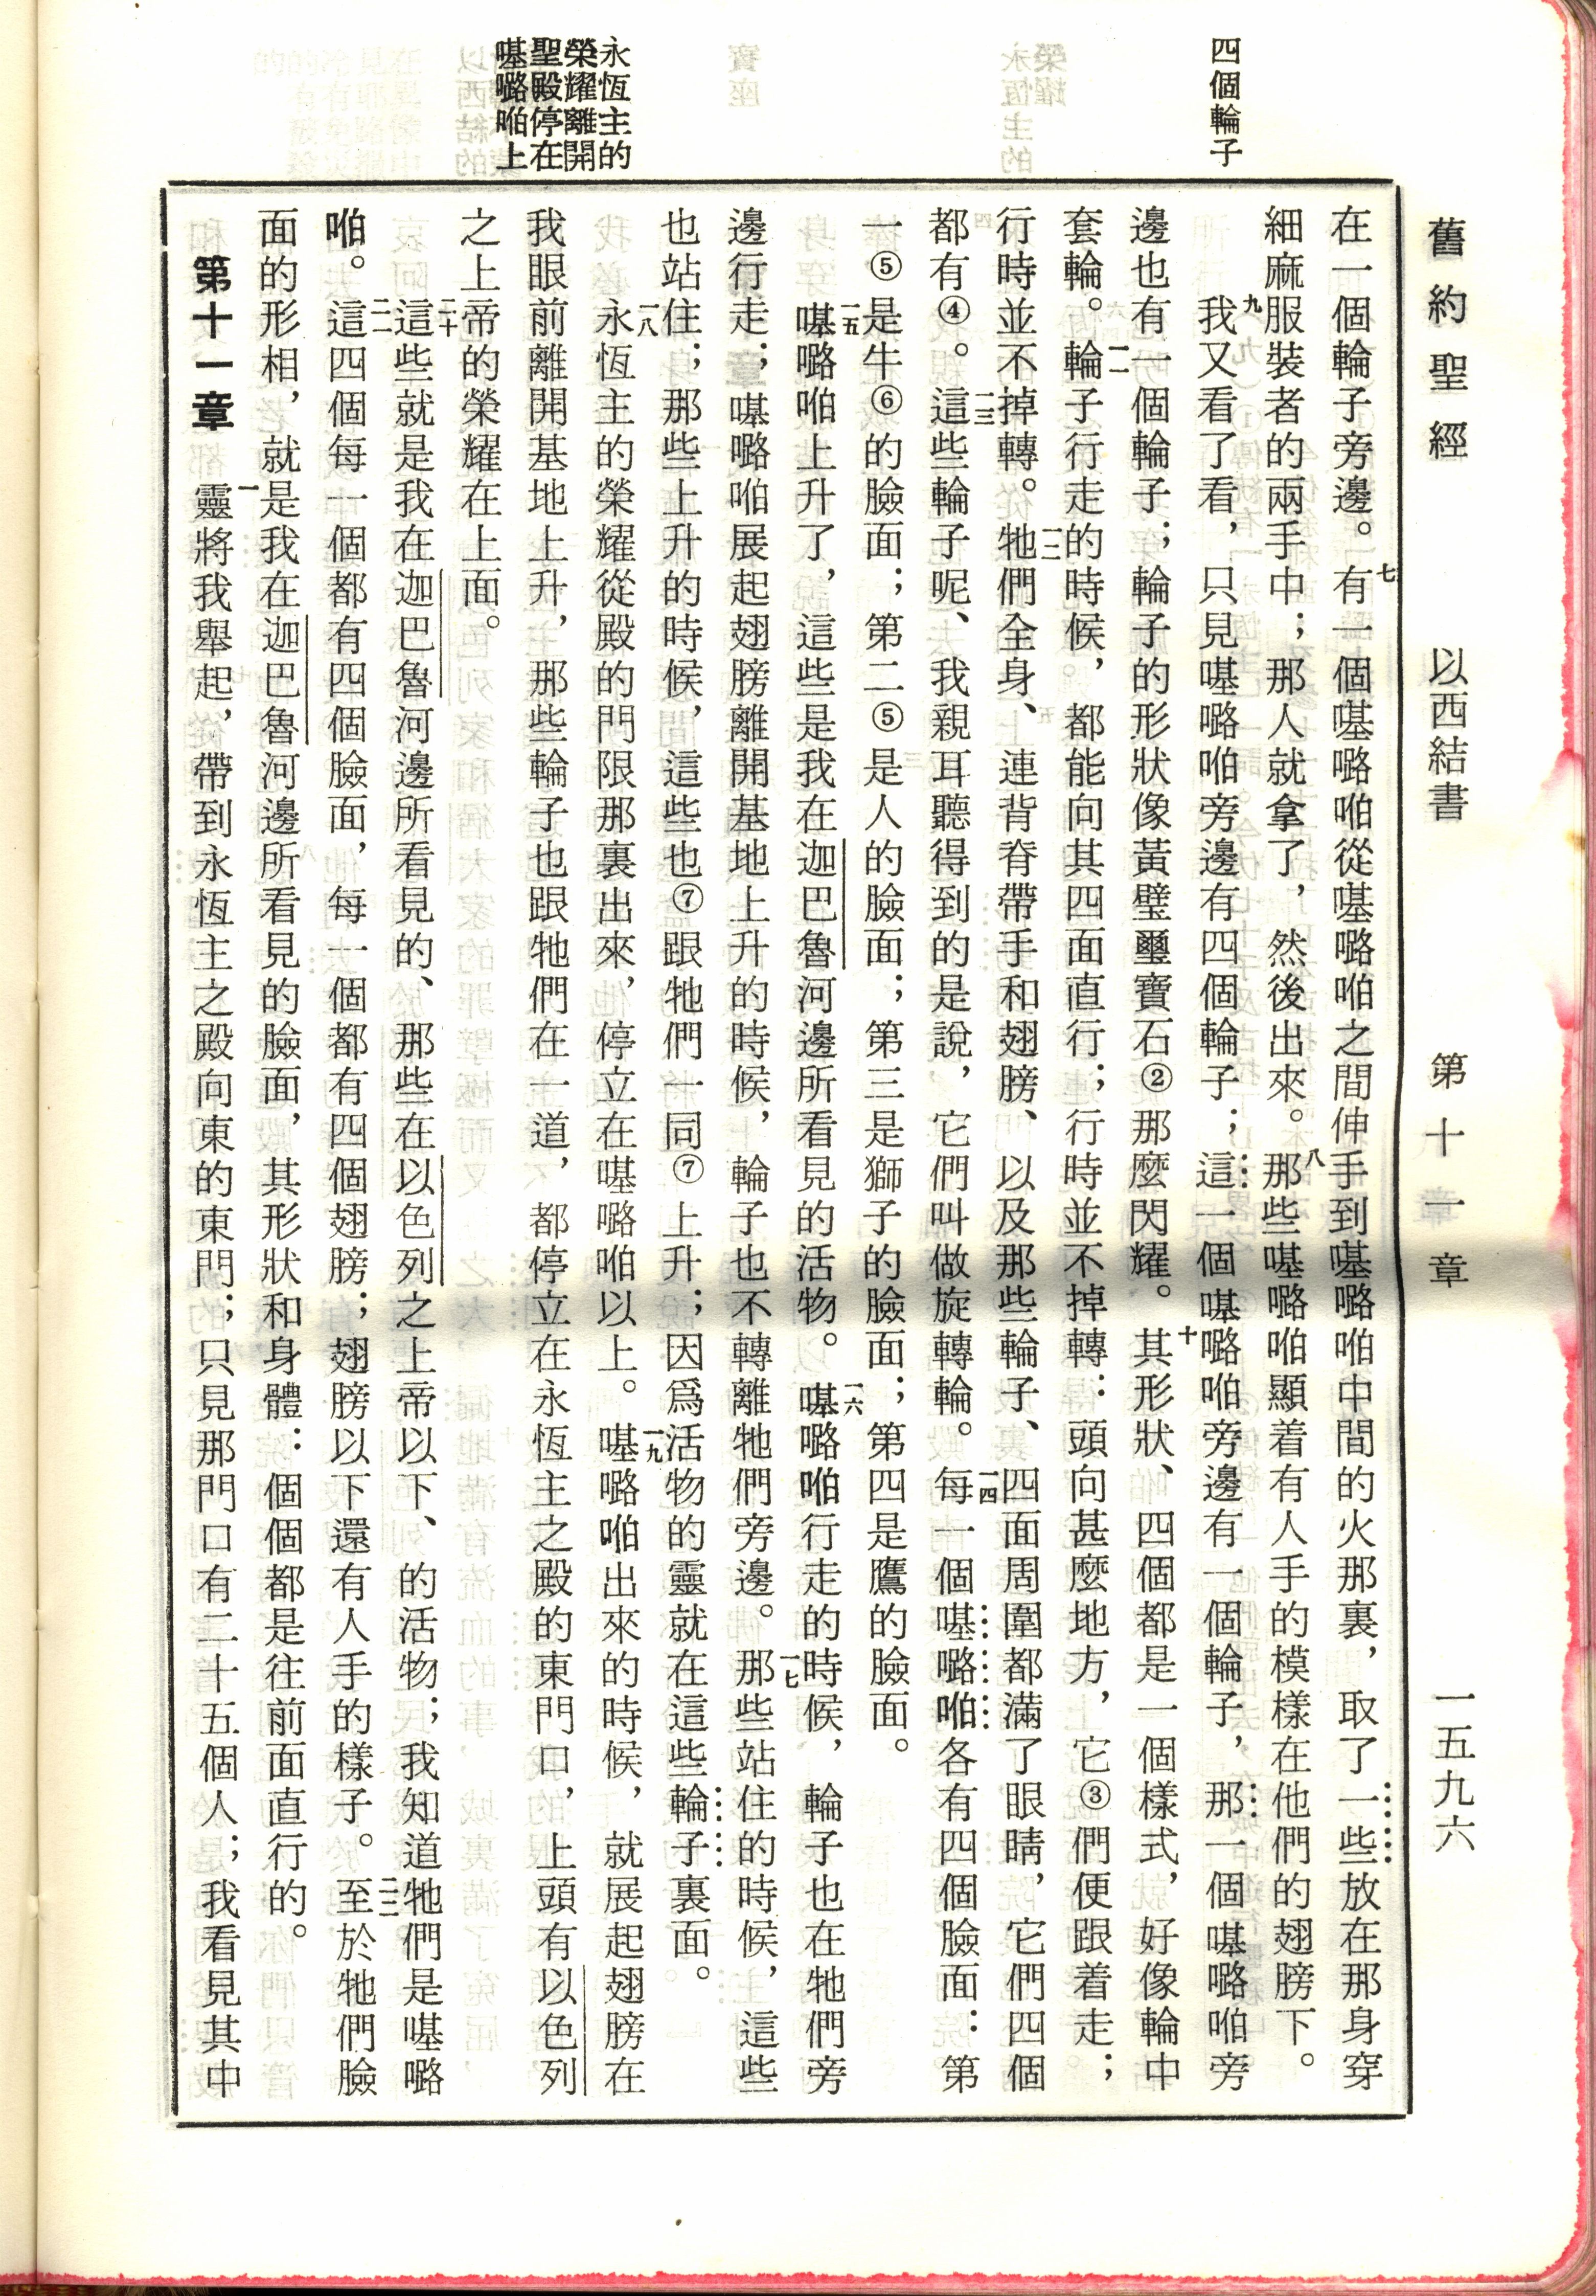 舊約聖經　以西結書　第十一章　一五九六
四個輪子
永恆主的
榮耀離開
聖殿停在
𠼻㗉𠲿上
在一個輪子旁邊。七有一個𠼻㗉𠲿從𠼻㗉𠲿之間伸手到𠼻㗉𠲿中間的火那裏，取了一些放在那身穿
細麻服裝者的兩手中；那人就拿了，然後出來。八那些𠼻㗉𠲿顯着有人手的模樣在他們的翅膀下。
九我又看了看，只見𠼻㗉𠲿旁邊有四個輪子；這一個𠼻㗉𠲿旁邊有一個輪子，那一個𠼻㗉𠲿旁
邊也有一個輪子；輪子的形狀像黃璧璽寶石②那麼閃耀。十其形狀、四個都是一個樣式，好像輪中
套輪。一一輪子行走的時候，都能向其四面直行；行時並不掉轉：頭向甚麼地方，它③們便跟着走；
行時並不掉轉。一二牠們全身、連背脊帶手和翅膀、以及那些輪子、四面周圍都滿了眼睛，它們四個
都有④。一三這些輪子呢、我親耳聽得到的是說，它們叫做旋轉輪。一四每一個𠼻㗉𠲿各有四個臉面：第
一⑤是牛⑥的臉面；第二⑤是人的臉面；第三是獅子的臉面；第四是鷹的臉面。
一五𠼻㗉𠲿上升了，這些是我在迦巴魯河邊所看見的活物。一六𠼻㗉𠲿行走的時候，輪子也在牠們旁
邊行走；𠼻㗉𠲿展起翅膀離開基地上升的時候，輪子也不轉離牠們旁邊。一七那些站住的時候，這些
也站住；那些上升的時候，這些也⑦跟牠們一同⑦上升；因爲活物的靈就在這些輪子裏面。
一八永恆主的榮耀從殿的門限那裏出來，停立在𠼻㗉𠲿以上。一九𠼻㗉𠲿出來的時候，就展起翅膀在
我眼前離開基地上升，那些輪子也跟牠們在一道，都停立在永恆主之殿的東門口，上頭有以色列
之上帝的榮耀在上面。
二十這些就是我在迦巴魯河邊所看見的、那些在以色列之上帝以下、的活物；我知道牠們是𠼻㗉
𠲿。二一這四個每一個都有四個臉面，每一個都有四個翅膀；翅膀以下還有人手的樣子。二二至於牠們臉
面的形相，就是我在迦巴魯河邊所看見的臉面，其形狀和身體：個個都是往前面直行的。
第十一章　一靈將我舉起，帶到永恆主之殿向東的東門；只見那門口有二十五個人；我看見其中